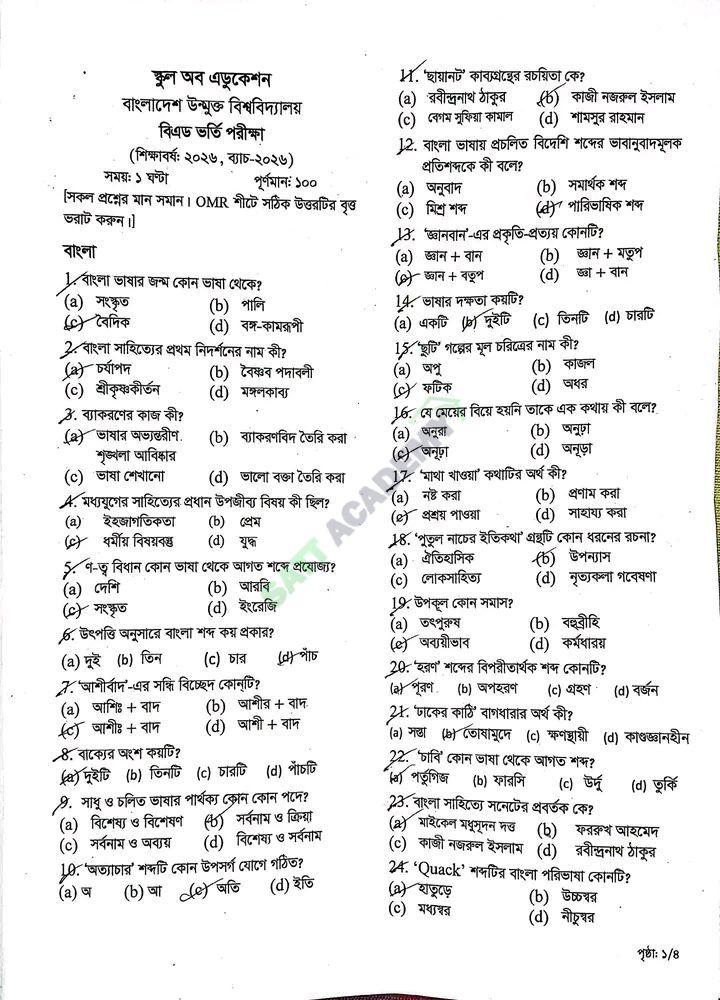 স্কুল অব এডুকেশন
বাংলাদেশ উন্মুক্ত বিশ্ববিদ্যালয়
বিএড ভর্তি পরীক্ষা
(শিক্ষাবর্ষ: ২০২৬, ব্যাচ-২০২৬)
সময়: ১ ঘণ্টা পূর্ণমান: ১০০
[সকল প্রশ্নের মান সমান। OMR শীটে সঠিক উত্তরটির বৃত্ত
ভরাট করুন।]
বাংলা
1. বাংলা ভাষার জন্ম কোন ভাষা থেকে?
(a) সংস্কৃত (b) পালি
(c) বৈদিক (d) বঙ্গ-কামরূপী
2. বাংলা সাহিত্যের প্রথম নিদর্শনের নাম কী?
(a) চর্যাপদ (b) বৈষ্ণব পদাবলী
(c) শ্রীকৃষ্ণকীর্তন (d) মঙ্গলকাব্য
3. ব্যাকরণের কাজ কী?
(a) ভাষার অভ্যন্তরীণ (b) ব্যাকরণবিদ তৈরি করা
শৃঙ্খলা আবিষ্কার
(c) ভাষা শেখানো (d) ভালো বক্তা তৈরি করা
4. মধ্যযুগের সাহিত্যের প্রধান উপজীব্য বিষয় কী ছিল?
(a) ইহজাগতিকতা (b) প্রেম
(c) ধর্মীয় বিষয়বস্তু (d) যুদ্ধ
5. ণ-ত্ব বিধান কোন ভাষা থেকে আগত শব্দে প্রযোজ্য?
(a) দেশি (b) আরবি
(c) সংস্কৃত (d) ইংরেজি
6. উৎপত্তি অনুসারে বাংলা শব্দ কয় প্রকার?
(a) দুই (b) তিন (c) চার (d) পাঁচ
7. 'আশীর্বাদ'-এর সন্ধি বিচ্ছেদ কোনটি?
(a) আশিঃ + বাদ (b) আশীর + বাদ
(c) আশীঃ + বাদ (d) আশী + বাদ
8. বাক্যের অংশ কয়টি?
(a) দুইটি (b) তিনটি (c) চারটি (d) পাঁচটি
9. সাধু ও চলিত ভাষার পার্থক্য কোন কোন পদে?
(a) বিশেষ্য ও বিশেষণ (b) সর্বনাম ও ক্রিয়া
(c) সর্বনাম ও অব্যয় (d) বিশেষ্য ও সর্বনাম
10. 'অত্যাচার' শব্দটি কোন উপসর্গ যোগে গঠিত?
(a) অ (b) আ (c) অতি (d) ইতি
11. 'ছায়ানট' কাব্যগ্রন্থের রচয়িতা কে?
(a) রবীন্দ্রনাথ ঠাকুর (b) কাজী নজরুল ইসলাম
(c) বেগম সুফিয়া কামাল (d) শামসুর রাহমান
12. বাংলা ভাষায় প্রচলিত বিদেশি শব্দের ভাবানুবাদমূলক
প্রতিশব্দকে কী বলে?
(a) অনুবাদ (b) সমার্থক শব্দ
(c) মিশ্র শব্দ (d) পারিভাষিক শব্দ
13. 'জ্ঞানবান'-এর প্রকৃতি-প্রত্যয় কোনটি?
(a) জ্ঞান + বান (b) জ্ঞান + মতুপ
(c) জ্ঞান + বতুপ (d) জ্ঞা + বান
14. ভাষার দক্ষতা কয়টি?
(a) একটি (b) দুইটি (c) তিনটি (d) চারটি
15. 'ছুটি' গল্পের মূল চরিত্রের নাম কী?
(a) অপু (b) কাজল
(c) ফটিক (d) অধর
16. যে মেয়ের বিয়ে হয়নি তাকে এক কথায় কী বলে?
(a) অনুরা (b) অনুঢ়া
(c) অনূঢ়া (d) অনূড়া
17. 'মাথা খাওয়া' কথাটির অর্থ কী?
(a) নষ্ট করা (b) প্রণাম করা
(c) প্রশ্রয় পাওয়া (d) সাহায্য করা
18. 'পুতুল নাচের ইতিকথা' গ্রন্থটি কোন ধরনের রচনা?
(a) ঐতিহাসিক (b) উপন্যাস
(c) লোকসাহিত্য (d) নৃত্যকলা গবেষণা
19. উপকূল কোন সমাস?
(a) তৎপুরুষ (b) বহুব্রীহি
(c) অব্যয়ীভাব (d) কর্মধারয়
20. 'হরণ' শব্দের বিপরীতার্থক শব্দ কোনটি?
(a) পূরণ (b) অপহরণ (c) গ্রহণ (d) বর্জন
21. 'ঢাকের কাঠি' বাগধারার অর্থ কী?
(a) সস্তা (b) তোষামুদে (c) ক্ষণস্থায়ী (d) কাণ্ডজ্ঞানহীন
22. 'চাবি' কোন ভাষা থেকে আগত শব্দ?
(a) পর্তুগিজ (b) ফারসি (c) উর্দু (d) তুর্কি
23. বাংলা সাহিত্যে সনেটের প্রবর্তক কে?
(a) মাইকেল মধুসূদন দত্ত (b) ফররুখ আহমেদ
(c) কাজী নজরুল ইসলাম (d) রবীন্দ্রনাথ ঠাকুর
24. 'Quack' শব্দটির বাংলা পরিভাষা কোনটি?
(a) হাতুড়ে (b) উচ্চস্বর
(c) মধ্যস্বর (d) নীচুস্বর
পৃষ্ঠা: ১/৪
SATT ACADEMY